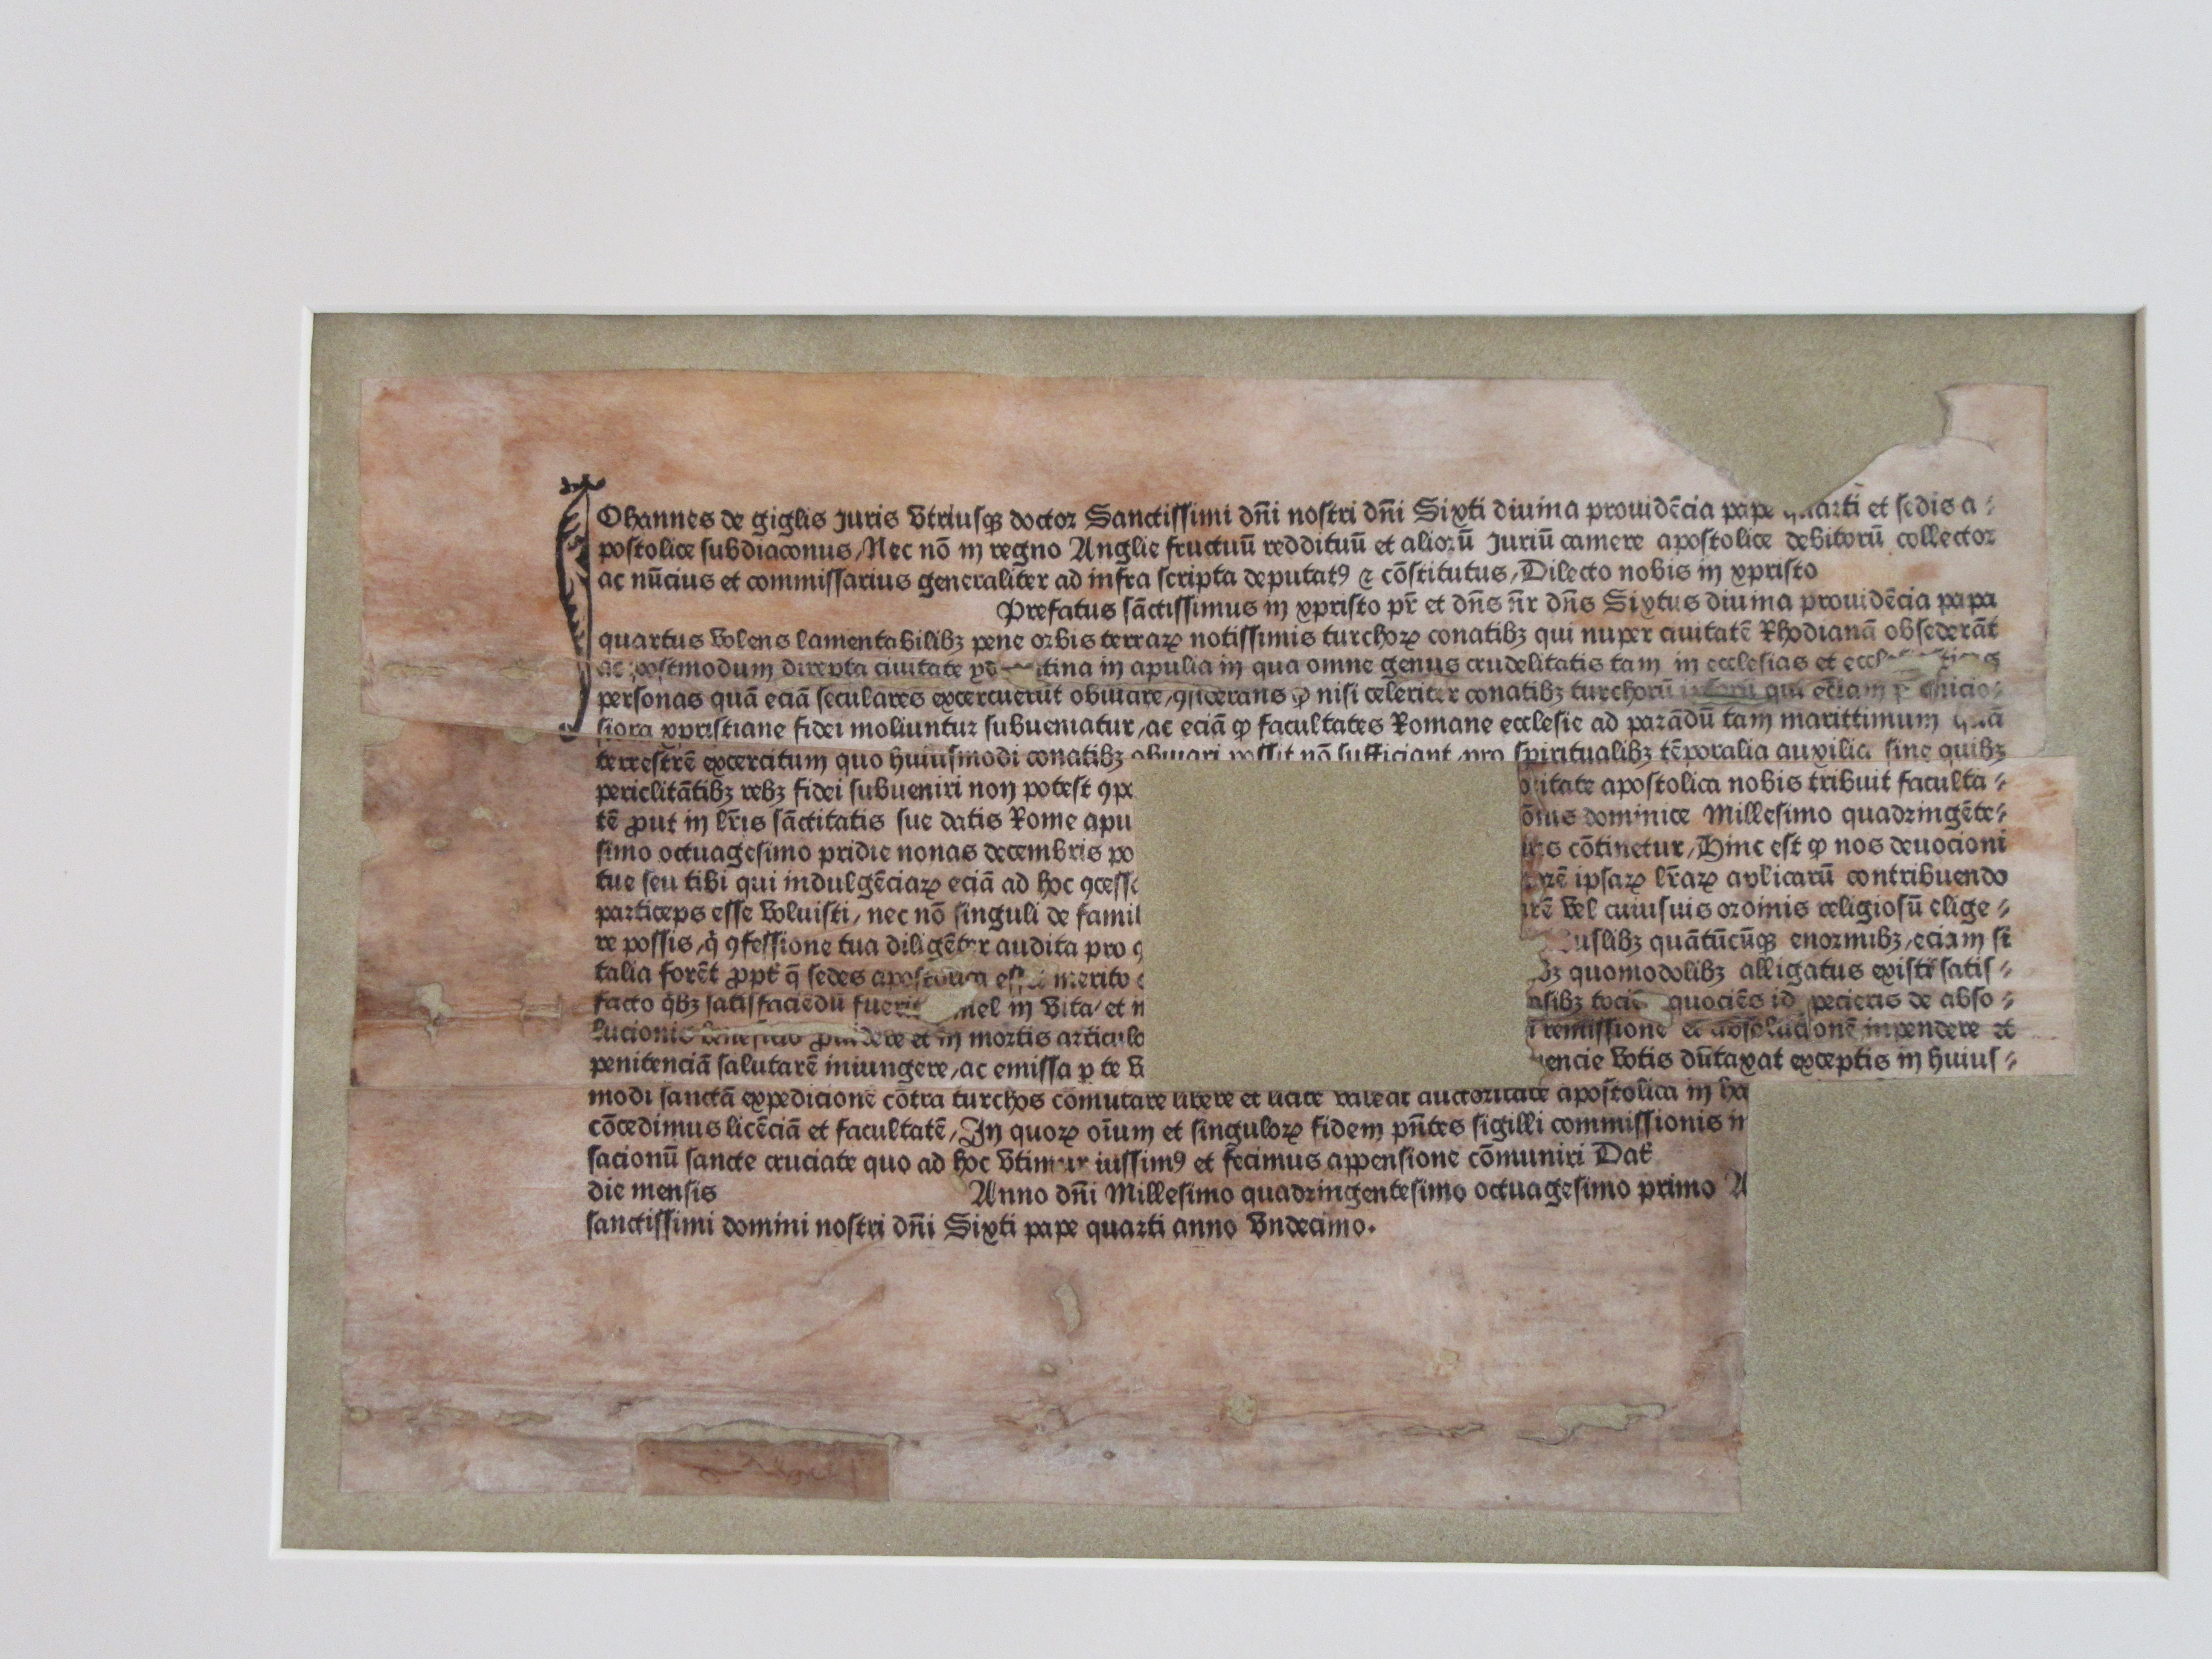 IOhannes de giglis Juris vtriusqȝ doctor Sanctissimi dn̄i nostri dn̄i Sixti diuina prouidēcia pape quarti et sedis a⸗
postolice subdiaconus/Nec nō in regno Anglie fructuū reddituū et aliorū Juriū camere apostolice debitorū collector
ac nūcius et commissarius generaliter ad infra scripta deputatꝰ ⁊ cōstitutus/Dilecto nobis in xpristo
Prefatus sāctissimus in xpristo pr̄ et dn̄s n̄r dn̄s Sixtus diuina prouidēcia papa
quartus volens lamentabilibȝ pene orbis terraꝝ notissimis turchoꝝ conatibȝ qui nuper ciuitatē Rhodianā obsederāt
ac postmodum direpta ciuitate tina in apulia in qua omne genus crudelitatis tam in ecclesias et
personas quā eciā seculares excercuerūt obuiare/ꝯsiderans ꝙ nisi celeriter conatibȝ turchorū qui eciam
siora xpristiane fidei moliuntur subueniatur/ac eciā ꝙ facultates Romane ecclesie ad parādū tam marittimum quā
terrestrē excercitum quo huiusmodi conatibȝ obuiari possit nō sufficiant/pro spiritualibȝ tēporalia auxilia sine quibȝ
periclitātibȝ rebȝ fidei subueniri non potest ꝯpe itate apostolica nobis tribuit faculta⸗
tē ꝓut in lr̄is sāctitatis sue datis Rome apu dominice Millesimo quadringēte⸗
simo octuagesimo pridie nonas decembris po cōtinetur/Hinc est ꝙ nos deuocioni
tue seu tibi qui indulgēciaꝝ eciā ad hoc ꝯcesse ipsaꝝ lr̄aꝝ aplicarū contribuendo
particeps esse voluisti/nec nō singuli de famil rē vel cuiusuis ordinis religiosū elige⸗
re possis/q̇ ꝯfessione tua diligēter audita pro uslibȝ quātūcūqȝ enormibȝ/eciam si
talia forēt ꝓpt̄ q̄ sedes apostolica esset merito quomodolibȝ alligatus existi satis⸗
facto q̇bȝ satisfaciēdū fuerit mel in vita/et n sibȝ tociē quociēs id pecieris de abso⸗
lucionis beneficio ꝓuidere et in mortis articulo remissionē et absolucionē impendere et
penitenciā salutarē iniungere/ac emissa ꝑ te v encie votis dūtaxat exceptis in huius⸗
modi sanctā expedicionē cōtra turchos cōmutare libere et licite valeat auctoritate apostolica in ha
cōcedimus licēciā et facultatē/In quoꝝ oīum et singuloꝝ fidem pn̄tes sigilli commissionis n
sacionū sancte cruciate quo ad hoc vtimur iussimꝰ et fecimus appensione cōmuniri Dat̄
die mensis Anno dn̄i Millesimo quadringentesimo octuagesimo primo
sanctissimi domini nostri dn̄i Sixti pape quarti anno vndecimo.